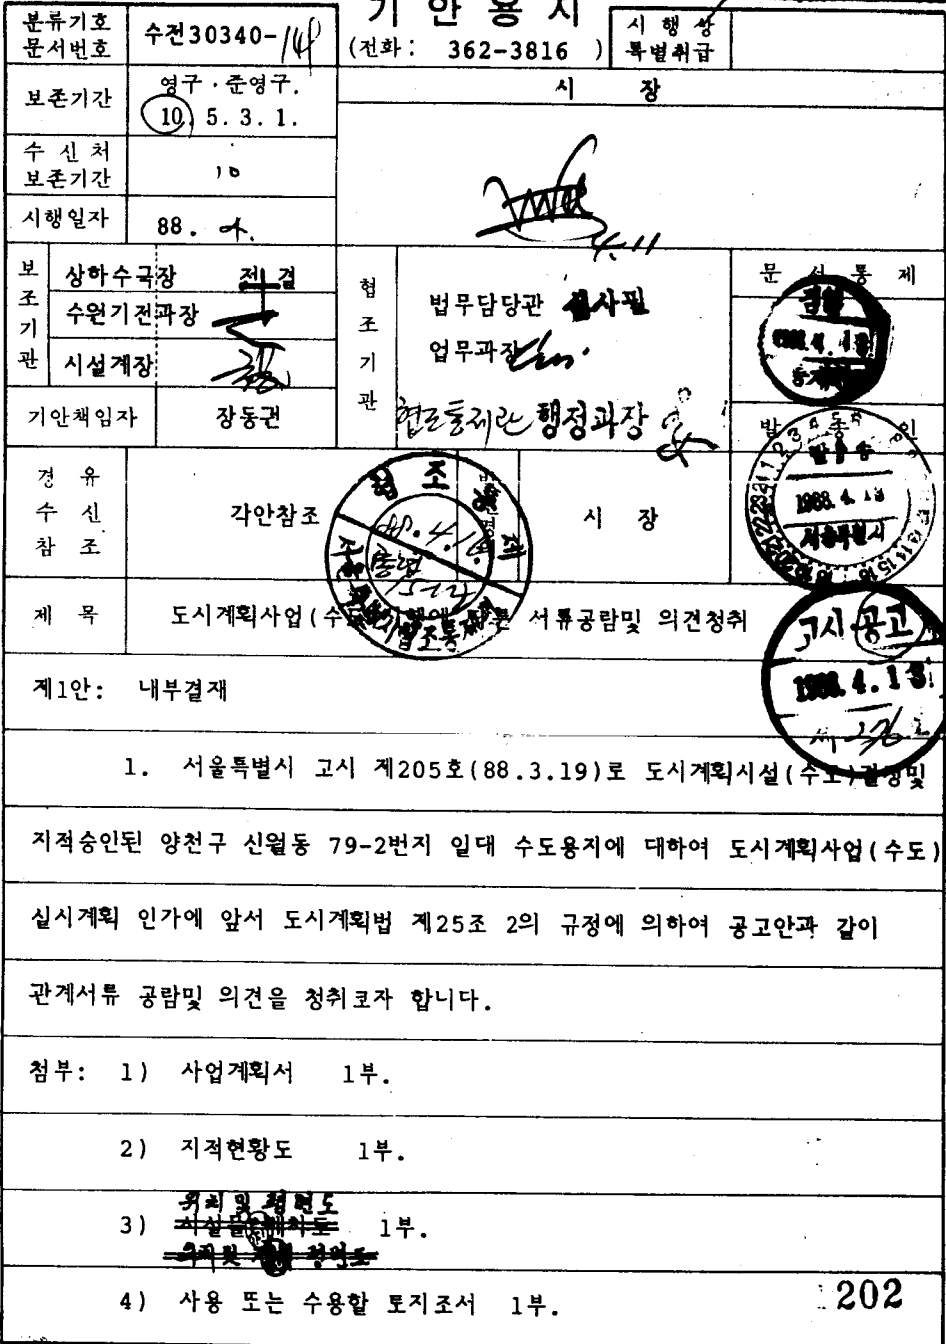 기 안 용 지
분류기호
문서번호
수전30340-
(전화 : 362-3816 )
시 행 상
특별취급
보존기간
영구 · 준영구.
10. 5. 3. 1.
시 장
수 신 처
보존기간
10
시행일자
88. 4.
4.11
보조기관
상하수국장 전결
수원기전과장
시설계장
협조기관
법무담당관
업무과장
협조통제관 행정과장
문 서 통 제
1988. 4. 13
기안책임자
장동권
발 송 인
발송
1988. 4. 13
서울특별시
경 유
수 신
참 조
각안참조
협 조
88. 4. 12
시 장
제 목
도시계획사업(수 서류공람및 의견청취
고시 공고
1988. 4. 13
제1안: 내부결재
1. 서울특별시 고시 제205호(88.3.19)로 도시계획시설(수도)결정및
지적승인된 양천구 신월동 79-2번지 일대 수도용지에 대하여 도시계획사업(수도)
실시계획 인가에 앞서 도시계획법 제25조 2의 규정에 의하여 공고안과 같이
관계서류 공람및 의견을 청취코자 합니다.
첨부: 1) 사업계획서 1부.
2) 지적현황도 1부.
위치 및 평면도
3) 1부.
4) 사용 또는 수용할 토지조서 1부.
202